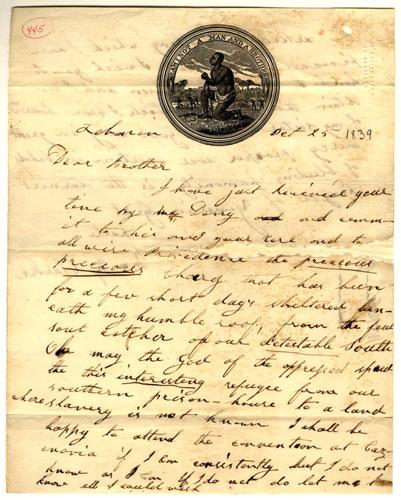 445
AM I NOT A MAN AND A BROTHER
Lebanon Oct 25 1839
Dear Brother
I have just received your
line by Mr Derry and comm-
it to his and your care and to
all wise Providence the precious
precious charg that has been
for a few short day's sheltered ben-
eath my humble roof, from the feul
soul catcher of our detestable South
Oh may the God of the oppressed speed
the this interesting refugee from our
southern prison-house to a land
where slavery is not known I shall be
happy to attend the convention at Caz-
enovia if I can consistantly but I do not
know as I can if I do not do let me
know all I could wish